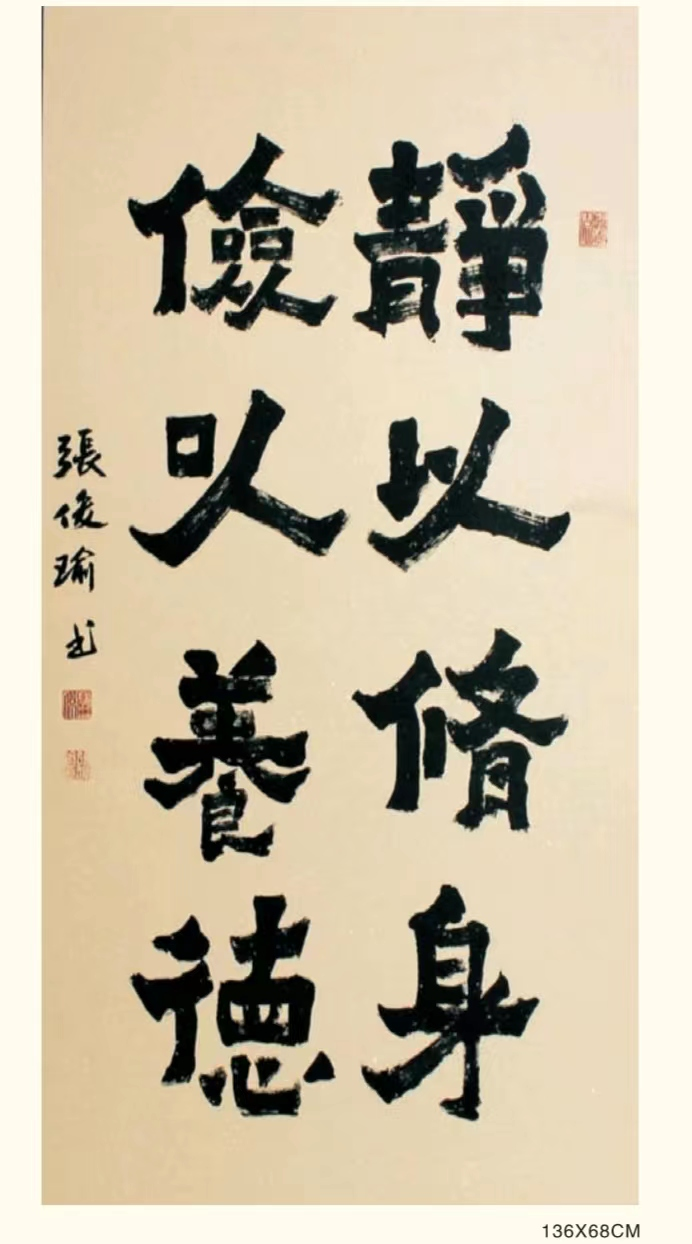 靜以脩身
儉以養德
張俊瑜书
136X68CM